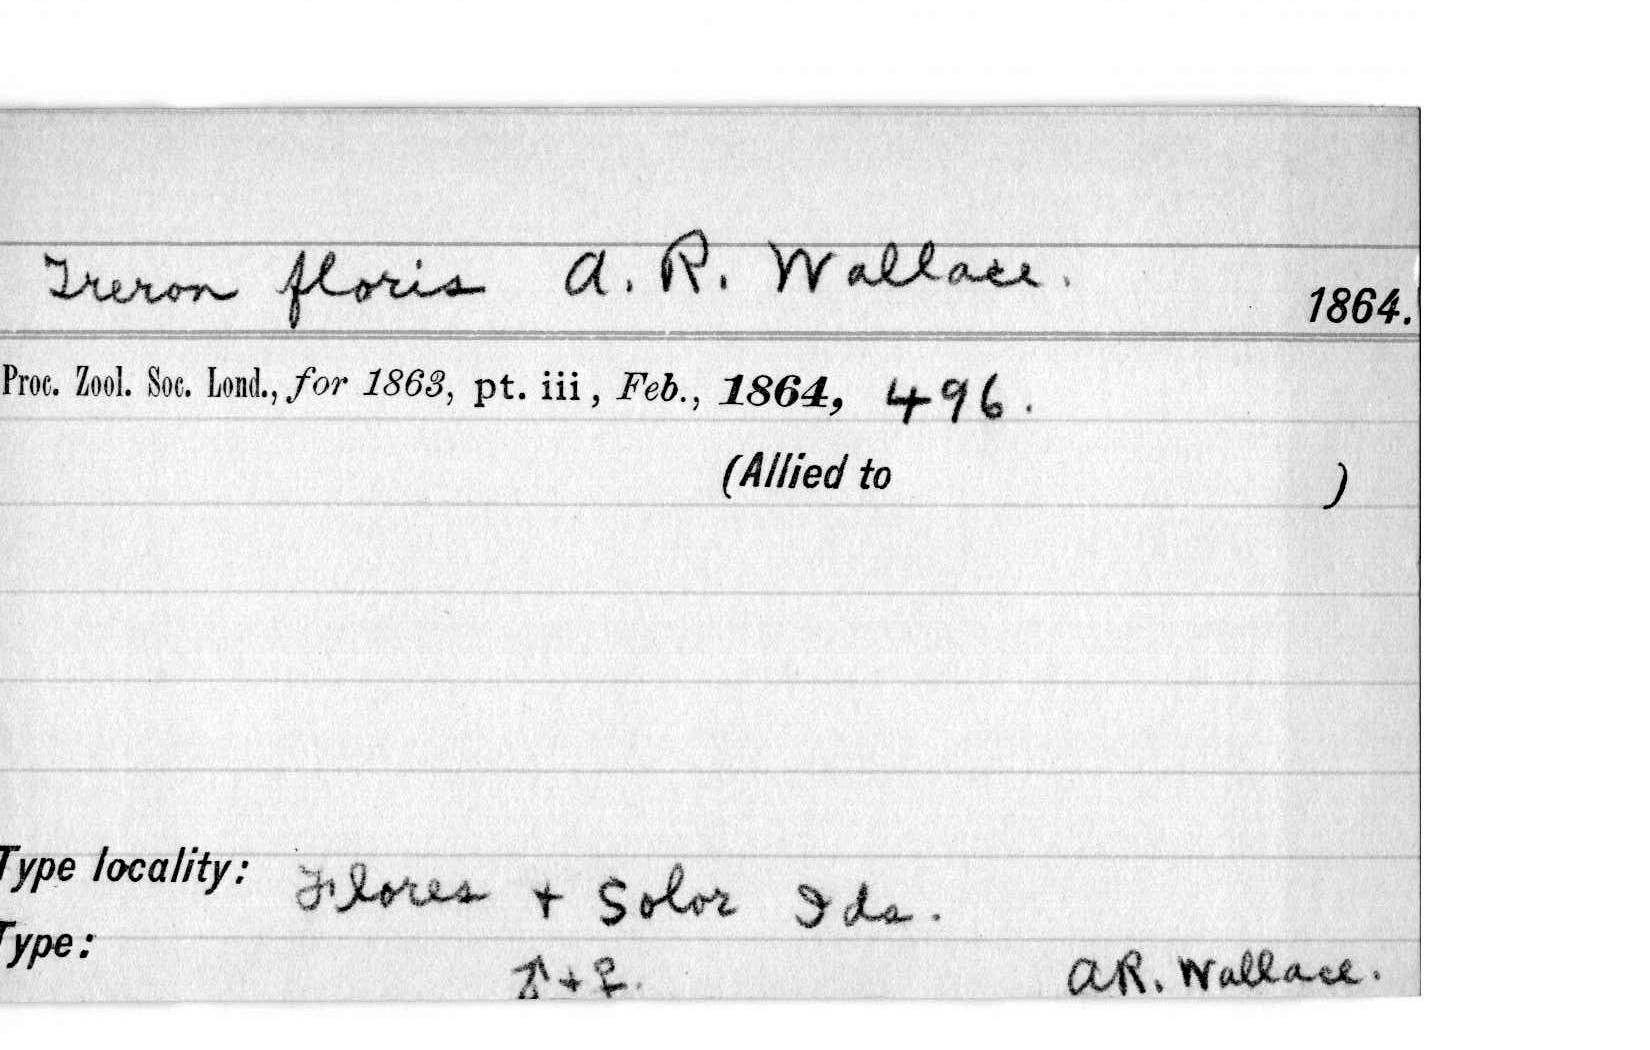 Treron floris A. R. Wallace.
1864.
Proc. Zool. Soc. Lond., for 1863, pt. iii, Feb., 1864, 496.
(Allied to )
Type locality: Flores + Solor Ids.
Type:
♂ + ♀. A R. Wallace.